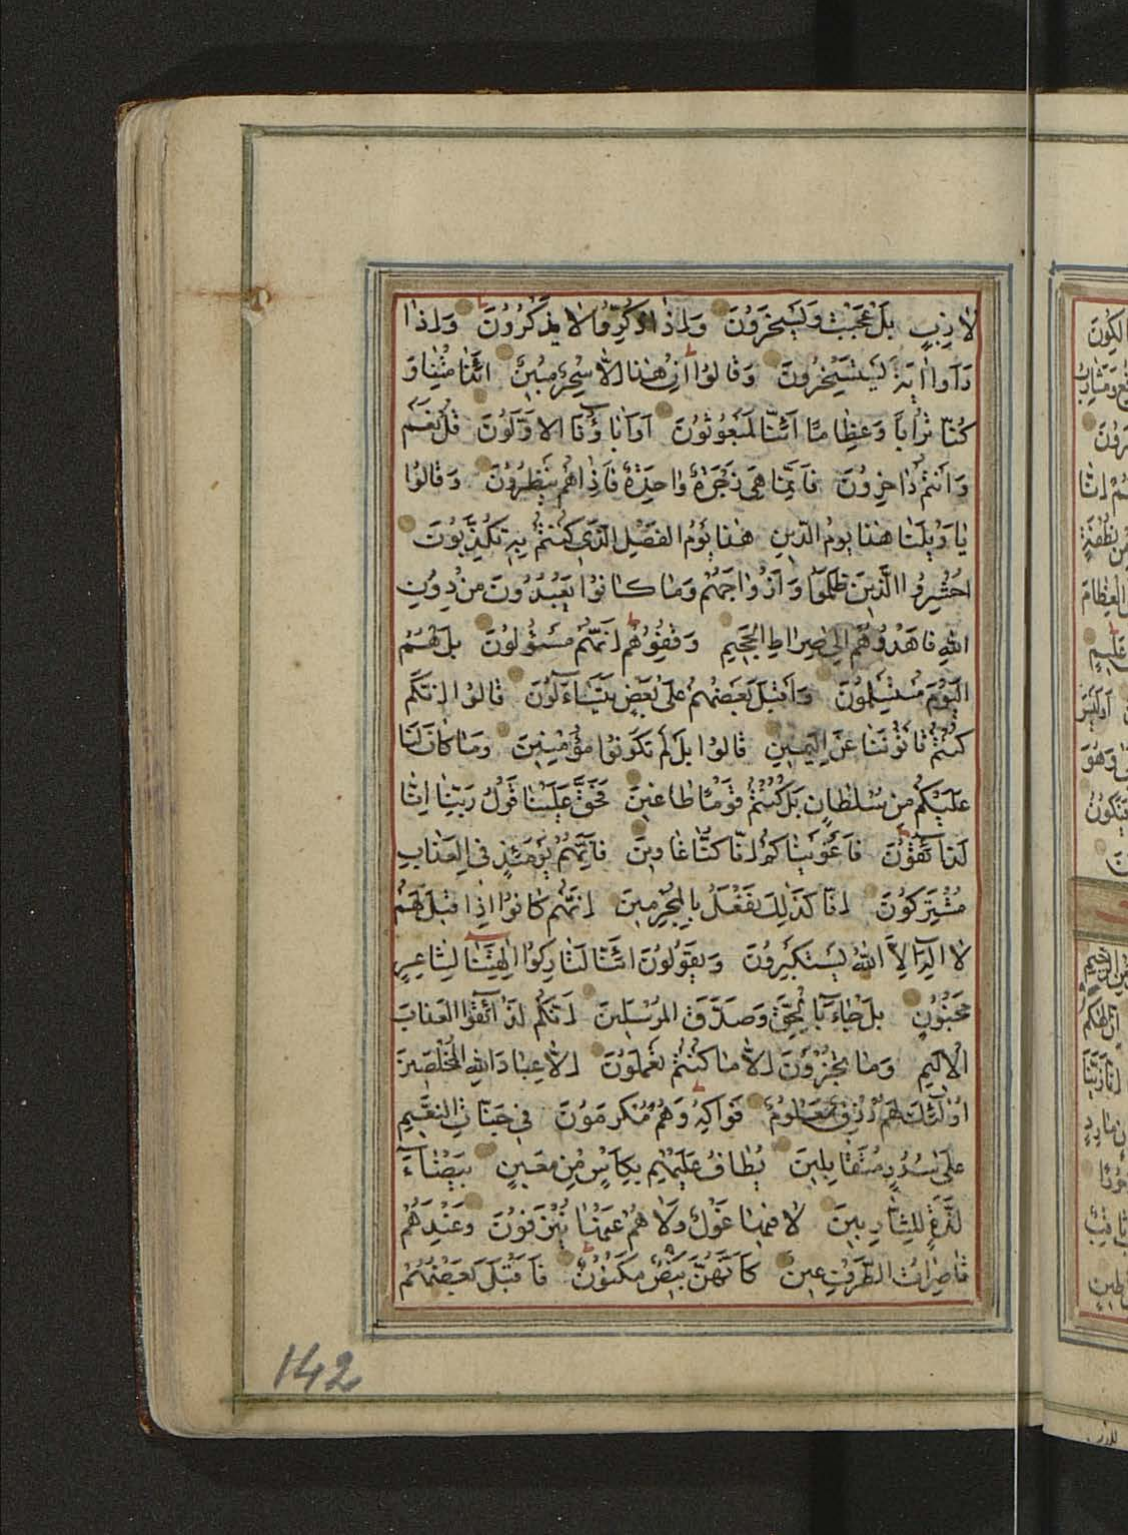 لَازِبٍ بَلْ عَجِبْتَ وَيَسْخَرُونَ وَاِذَا ذُكِّرُوا لَا يَذْكُرُونَ وَاِذَا
رَاَوْا اٰيَةً يَسْتَسْخِرُونَ وَقَالُوا اِنْ هٰذَا اِلَّا سِحْرٌ مُبِينٌ ائِذَا مِتْنَا وَ
كُنَّا تُرَابًا وَعِظَامًا ائِنَّا لَمَبْعُوثُونَ اَوَاٰبَاؤُنَا الْاَوَّلُونَ قُلْ نَعَمْ
وَاَنْتُمْ دَاخِرُونَ فَاِنَّمَا هِيَ زَجْرَةٌ وَاحِدَةٌ فَاِذَا هُمْ يَنْظُرُونَ وَقَالُوا
يَا وَيْلَنَا هٰذَا يَوْمُ الدِّينِ هٰذَا يَوْمُ الْفَصْلِ الَّذِي كُنْتُمْ بِهِ تُكَذِّبُونَ
اُحْشُرُوا الَّذِينَ ظَلَمُوا وَاَزْوَاجَهُمْ وَمَا كَانُوا يَعْبُدُونَ مِنْ دُونِ
اللهِ فَاهْدُوهُمْ اِلٰى صِرَاطِ الْجَحِيمِ وَقِفُوهُمْ اِنَّهُمْ مَسْؤُلُونَ بَلْ هُمُ
الْيَوْمَ مُسْتَسْلِمُونَ وَاَقْبَلَ بَعْضُهُمْ عَلٰى بَعْضٍ يَتَسَاءَلُونَ قَالُوا اِنَّكُمْ
كُنْتُمْ تَاْتُونَنَا عَنِ الْيَمِينِ قَالُوا بَلْ لَمْ تَكُونُوا مُؤْمِنِينَ وَمَا كَانَ لَنَا
عَلَيْكُمْ مِنْ سُلْطَانٍ بَلْ كُنْتُمْ قَوْمًا طَاغِينَ فَحَقَّ عَلَيْنَا قَوْلُ رَبِّنَا اِنَّا
لَذَائِقُونَ فَاَغْوَيْنَاكُمْ اِنَّا كُنَّا غَاوِينَ فَاِنَّهُمْ يَوْمَئِذٍ فِي الْعَذَابِ
مُشْتَرِكُونَ اِنَّا كَذٰلِكَ نَفْعَلُ بِالْمُجْرِمِينَ اِنَّهُمْ كَانُوا اِذَا قِيلَ لَهُمْ
لَا اِلٰهَ اِلَّا اللهُ يَسْتَكْبِرُونَ وَيَقُولُونَ ائِنَّا لَتَارِكُوا اٰلِهَتِنَا لِشَاعِرٍ
مَجْنُونٍ بَلْ جَاءَ بِالْحَقِّ وَصَدَّقَ الْمُرْسَلِينَ اِنَّكُمْ لَذَائِقُوا الْعَذَابَ
الْاَلِيمِ وَمَا تُجْزَوْنَ اِلَّا مَا كُنْتُمْ تَعْمَلُونَ اِلَّا عِبَادَ اللهِ الْمُخْلَصِينَ
اُولٰئِكَ لَهُمْ رِزْقٌ مَعْلُومٌ فَوَاكِهُ وَهُمْ مُكْرَمُونَ فِي جَنَّاتِ النَّعِيمِ
عَلٰى سُرُرٍ مُتَقَابِلِينَ يُطَافُ عَلَيْهِمْ بِكَاْسٍ مِنْ مَعِينٍ بَيْضَاءَ
لَذَّةٍ لِلشَّارِبِينَ لَا فِيهَا غَوْلٌ وَلَا هُمْ عَنْهَا يُنْزَفُونَ وَعِنْدَهُمْ
قَاصِرَاتُ الطَّرْفِ عِينٌ كَاَنَّهُنَّ بَيْضٌ مَكْنُونٌ فَاَقْبَلَ بَعْضُهُمْ
142